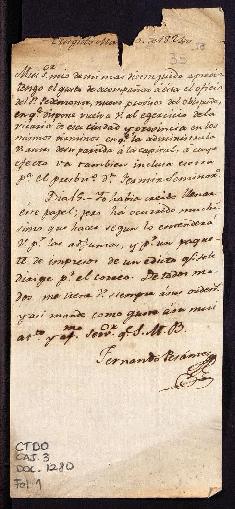 de 1824
58
Muy S. mio de mi mas distinguido aprecio
tengo el gusto de acompañar a esta el oficio
del nuevo provisor del obispado,
en q.e dispone vuelva V. al egercicio de la
vicaria de esa ciudad y provincia en los
mismos terminos en q.e la administraba
antes de su partida a la capital, a cuyo
efecto va tambien inclusa otra
p.a el presbit.o d.n Fermin
havia creido llenar
este papel; pero ha ocurrido
simo que hacer segun lo contendrá
V. p.r los adjuntos, y p.r un paque-
te de impresos de un edicto q.e se le
dirige p.r el correo. De todos mo-
dos me tiene V. siempre a sus ordenes
y asi mande como guste a su mui
at.o y Serv.or q. S. M. B.
Fernando
CTDO
CAJ. 3
DOC. 1280
Fol 1